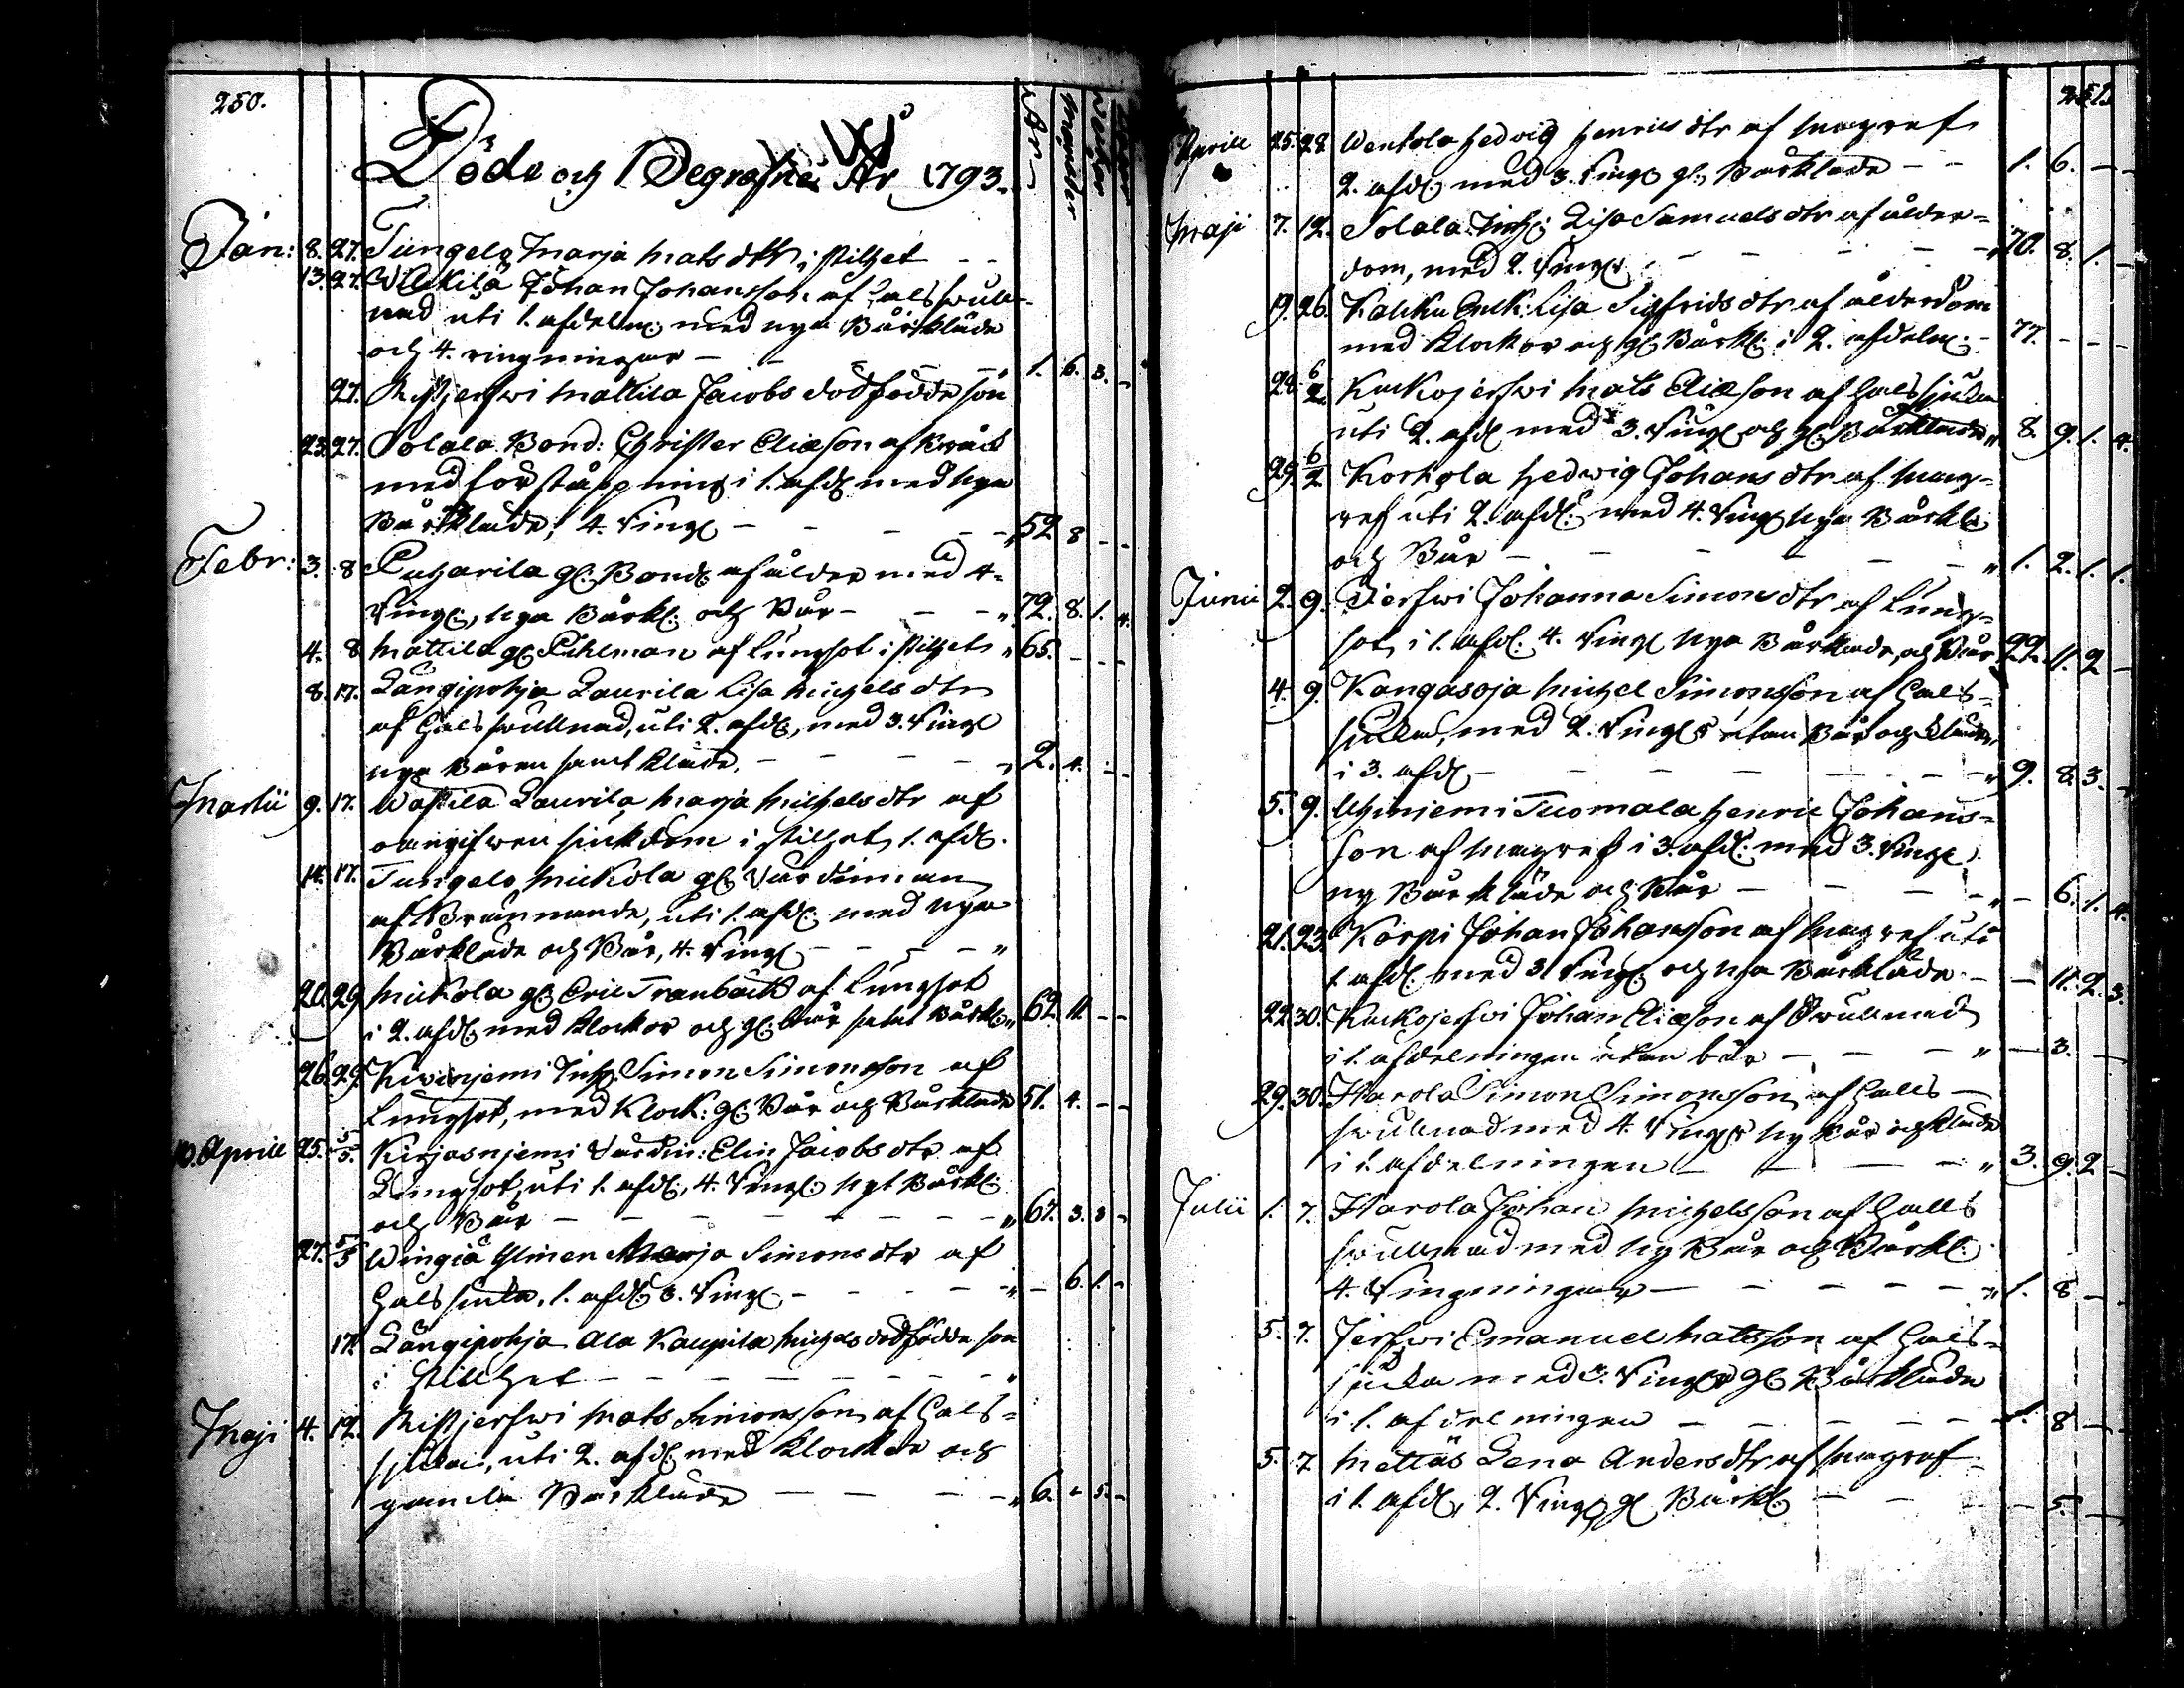 250.
Döde och Begrafne År 1793.
åhr månader wekor dagar
Jan: 8. 27. Tungelo Marja Mats dttr i stillhet - -
13. 27. Wlikilä Johan Johansson af halsswull-
nad uti 1. afdeln: med nya Bårkläde
och 4. ringningar - - - 1. 6. 3. -
27. Ristjerfwi Mattila Jacobs dödfödde son
23. 27. Solala Bond: Christer Eliæson af kråck
med förståppning i 1. afd: med nya
Bårkläde, 4. Ring: - - - - 52 8 - -
Febr: 3. 8 Puharila gl: Bond: af ålder med 4.
Ring:, nya Bårkl: och Bår - - - 72. 8. 1. 4.
4. 8 Mattila gl: Pihlman af Lungsot i stillhet 65. - - -
8. 17. Långipohja Laurila Lisa Michels dtr
af halsswullnad, uti 2. afd:, med 3. Ring:
nya Båren samt kläde. - - - - 2. 4. - -
Martii 9. 17. Wastila Laurila Marja Michelsdtr af
oangifwen siukdom i stillhet, 1. afd:
14. 17. Tungelo Mickola gl: Värdinnan
af Brännande, uti 1. afd: med nya
Bårkläde och Bår, 4. Ring: - - - -
20. 29. Mickola gl: Eric Tranbäck af Lungsot
i 2. afd: med klockor och gl: bår samt Bårkl: 62. 11. - -
26. 29. Kiwinjemi Inh: Simon Simonsson af
Lungsot, med klock: gl: Bår och Bårkläde 51. 4. - -
Aprill 25. 5/5. Kirjasnjemi Värdin: Elin Jacobs dtr af
Lungsot, uti 1. afd:, 4. Ring: nyt Bårkl:
och Bår - - - - - - - 67. 3. 3 -
27. 5/5 Wingiä Ylinen Marja Simonsdtr af
halssiuka, 1. afd: 3. Ring: - - - - - 6. 1. -
17. Långipohja Ala Kaupila Michels dödfödde son
i stillhet - - - - - - -
Maji 4. 12. Ristjerfwi Mats Simonsson af hals-
sjukan, uti 2. afd: med klockor och
gamla Bårkläde - - - - 6. - 5. -
251
Aprill 25. 28. Wentola Hedvig Henrics dtr af Magref
2. afd: med 3. Ring: gl: Bårkläde - - 1. 6. - -
Maji 7. 12. Solala Inh: Lisa Samuels dtr af ålder-
dom, med 2. Ring: - - - - - 70. 8. 1. -
19. 26. Kahku Enk: Lisa Sigfrids dtr af ålderdom
med klockor och gl: Bårkl: i 2. afdeln: - 77. - - -
28. 6/2 Kuckojerfwi Mats Eliæson af halssjukan
uti 2. afd: med 3. Ring: och gl: Bårkläde 8. 9. 1. 4.
29. 6/2 Korkola Hedwig Johans dtr af mag-
ref uti 2. afd: med 4. Ring: nya Bårkl:
och Bår - - - - - - 1. 2. 1. 1.
Junii 2. 9. Jerfwi Johanna Simonsdtr af Lung-
sot, i 1. afd: 4. Ring: nya Bårkläde, och Bår 22. 11. 2 -
4. 9. Kangasoja Michel Simonsson af hals-
siukan, med 2. Ring:r utan Bår och kläde,
i 3. afd: - - - - - - 9. 8. 3. -
5. 9. Uhiniemi Tuomala Henric Johans-
son af magref i 3. afd: med 3. Ring:
ny Bårkläde och Bår - - - - - 6. 1. 4.
21. 23. Korpi Johan Johansson af magref uti
1. afd: med 3. Ring: och nya Bårkläde - - 11. 2. 3.
22. 30. Kuckojerfwi Johan Eliæson af Swullnad
i 1. afdelningen utan bår - - - - 3. -
29. 30. Harola Simon Simonsson af hals-
swullnad med 4. Ring:r ny bår och kläde
i 1. afdelningen - - - 3. 9. 2 -
Julii 1. 7. Harola Johan Michelsson af hals
swullnad med ny Bår och Bårkl:
4. Ringningar - - - - - - 1. 8 - -
5. 7. Jerfwi Emanuel Matsson af hals-
sjuka med 3. Ring:r gl: Bårkläde
i 1. afdelningen - - - - - 1. 8 - -
5. 7 Mettäs Lena Anders dtr af magref
i 1. afd: 2. Ring: gl: Bårkl: - - - 5. -